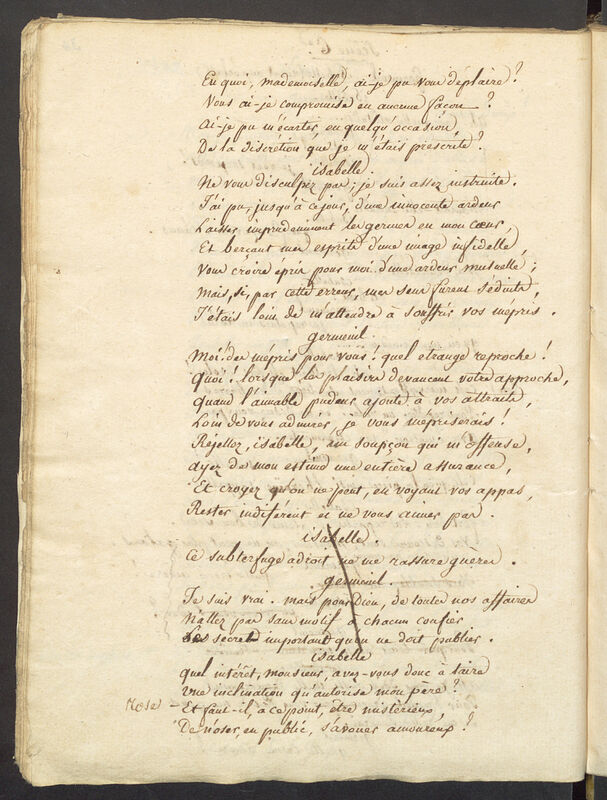 En quoi, mademoiselle, ai-je pu vous déplaire ?
Vous ai-je compromise en aucune façon ?
Ai-je pu m'écarter, en quelqu'occasion,
De la discrétion que je m'étais prescrite ?
isabelle.
Ne vous disculpez pas ; je suis assez instruite.
J'ai pu, jusqu'à ce jour, d'une innocente ardeur
Laisser imprudemment les germer en mon cœur,
Et berçant mes esprits d'une image infidelle,
Vous croire épris pour moi d'une ardeur mutuelle ;
Mais, si, par cette erreur, mes sens furent séduits,
J'étais loin de m'attendre à souffrir vos mépris.
germeuil.
Moi ! des mépris pour vous ! quel etrange reproche !
Quoi ! lorsque les plaisirs devancent votre approche,
quand l'aimable pudeur ajoute à vos attraits,
Loin de vous admirer, je vous mépriserais !
Rejettez, isabelle, un soupçon qui m'offense,
ayez de mon estime une entière assurance,
Et croyez qu'on ne peut, en voyant vos appas,
Rester indiferent et ne vous aimer pas.
isabelle.
Ce subterfuge adroit ne me rassure guères.
germeuil.
Je suis vrai. mais pour Dieu, de toutes nos affaires
N'allez pas sans motif à chacun confier
Les secrets important qu'on ne doit publier.
isabelle
quel intérêt, monsieur, avez-vous donc à taire
Une inclination qu'autorise mon père ?
Rose – Et faut-il, à ce point, être mistérieux,
De n'oser, en public, s'avouer amoureux ?